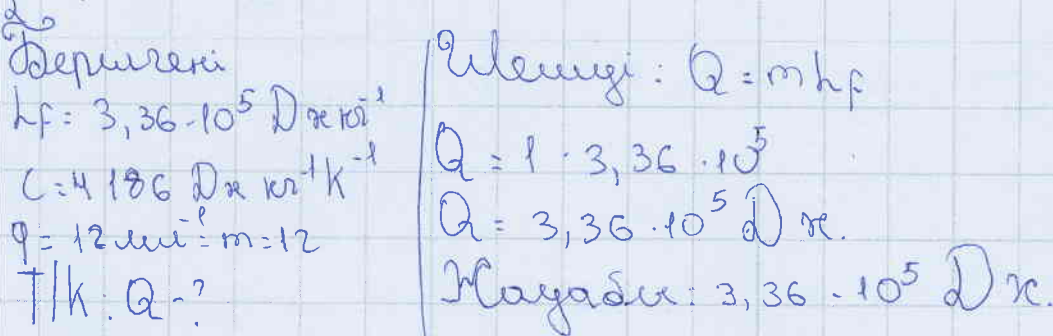 Берилгені
Lf = 3,36·10⁵ Дж кг⁻¹
C = 4186 Дж кг⁻¹K⁻¹
m = 12
T/k: Q - ?
Шешуі: Q = mLf
Q = 1 · 3,36 · 10⁵
Q = 3,36 · 10⁵ Дж.
Жауабы: 3,36 · 10⁵ Дж.